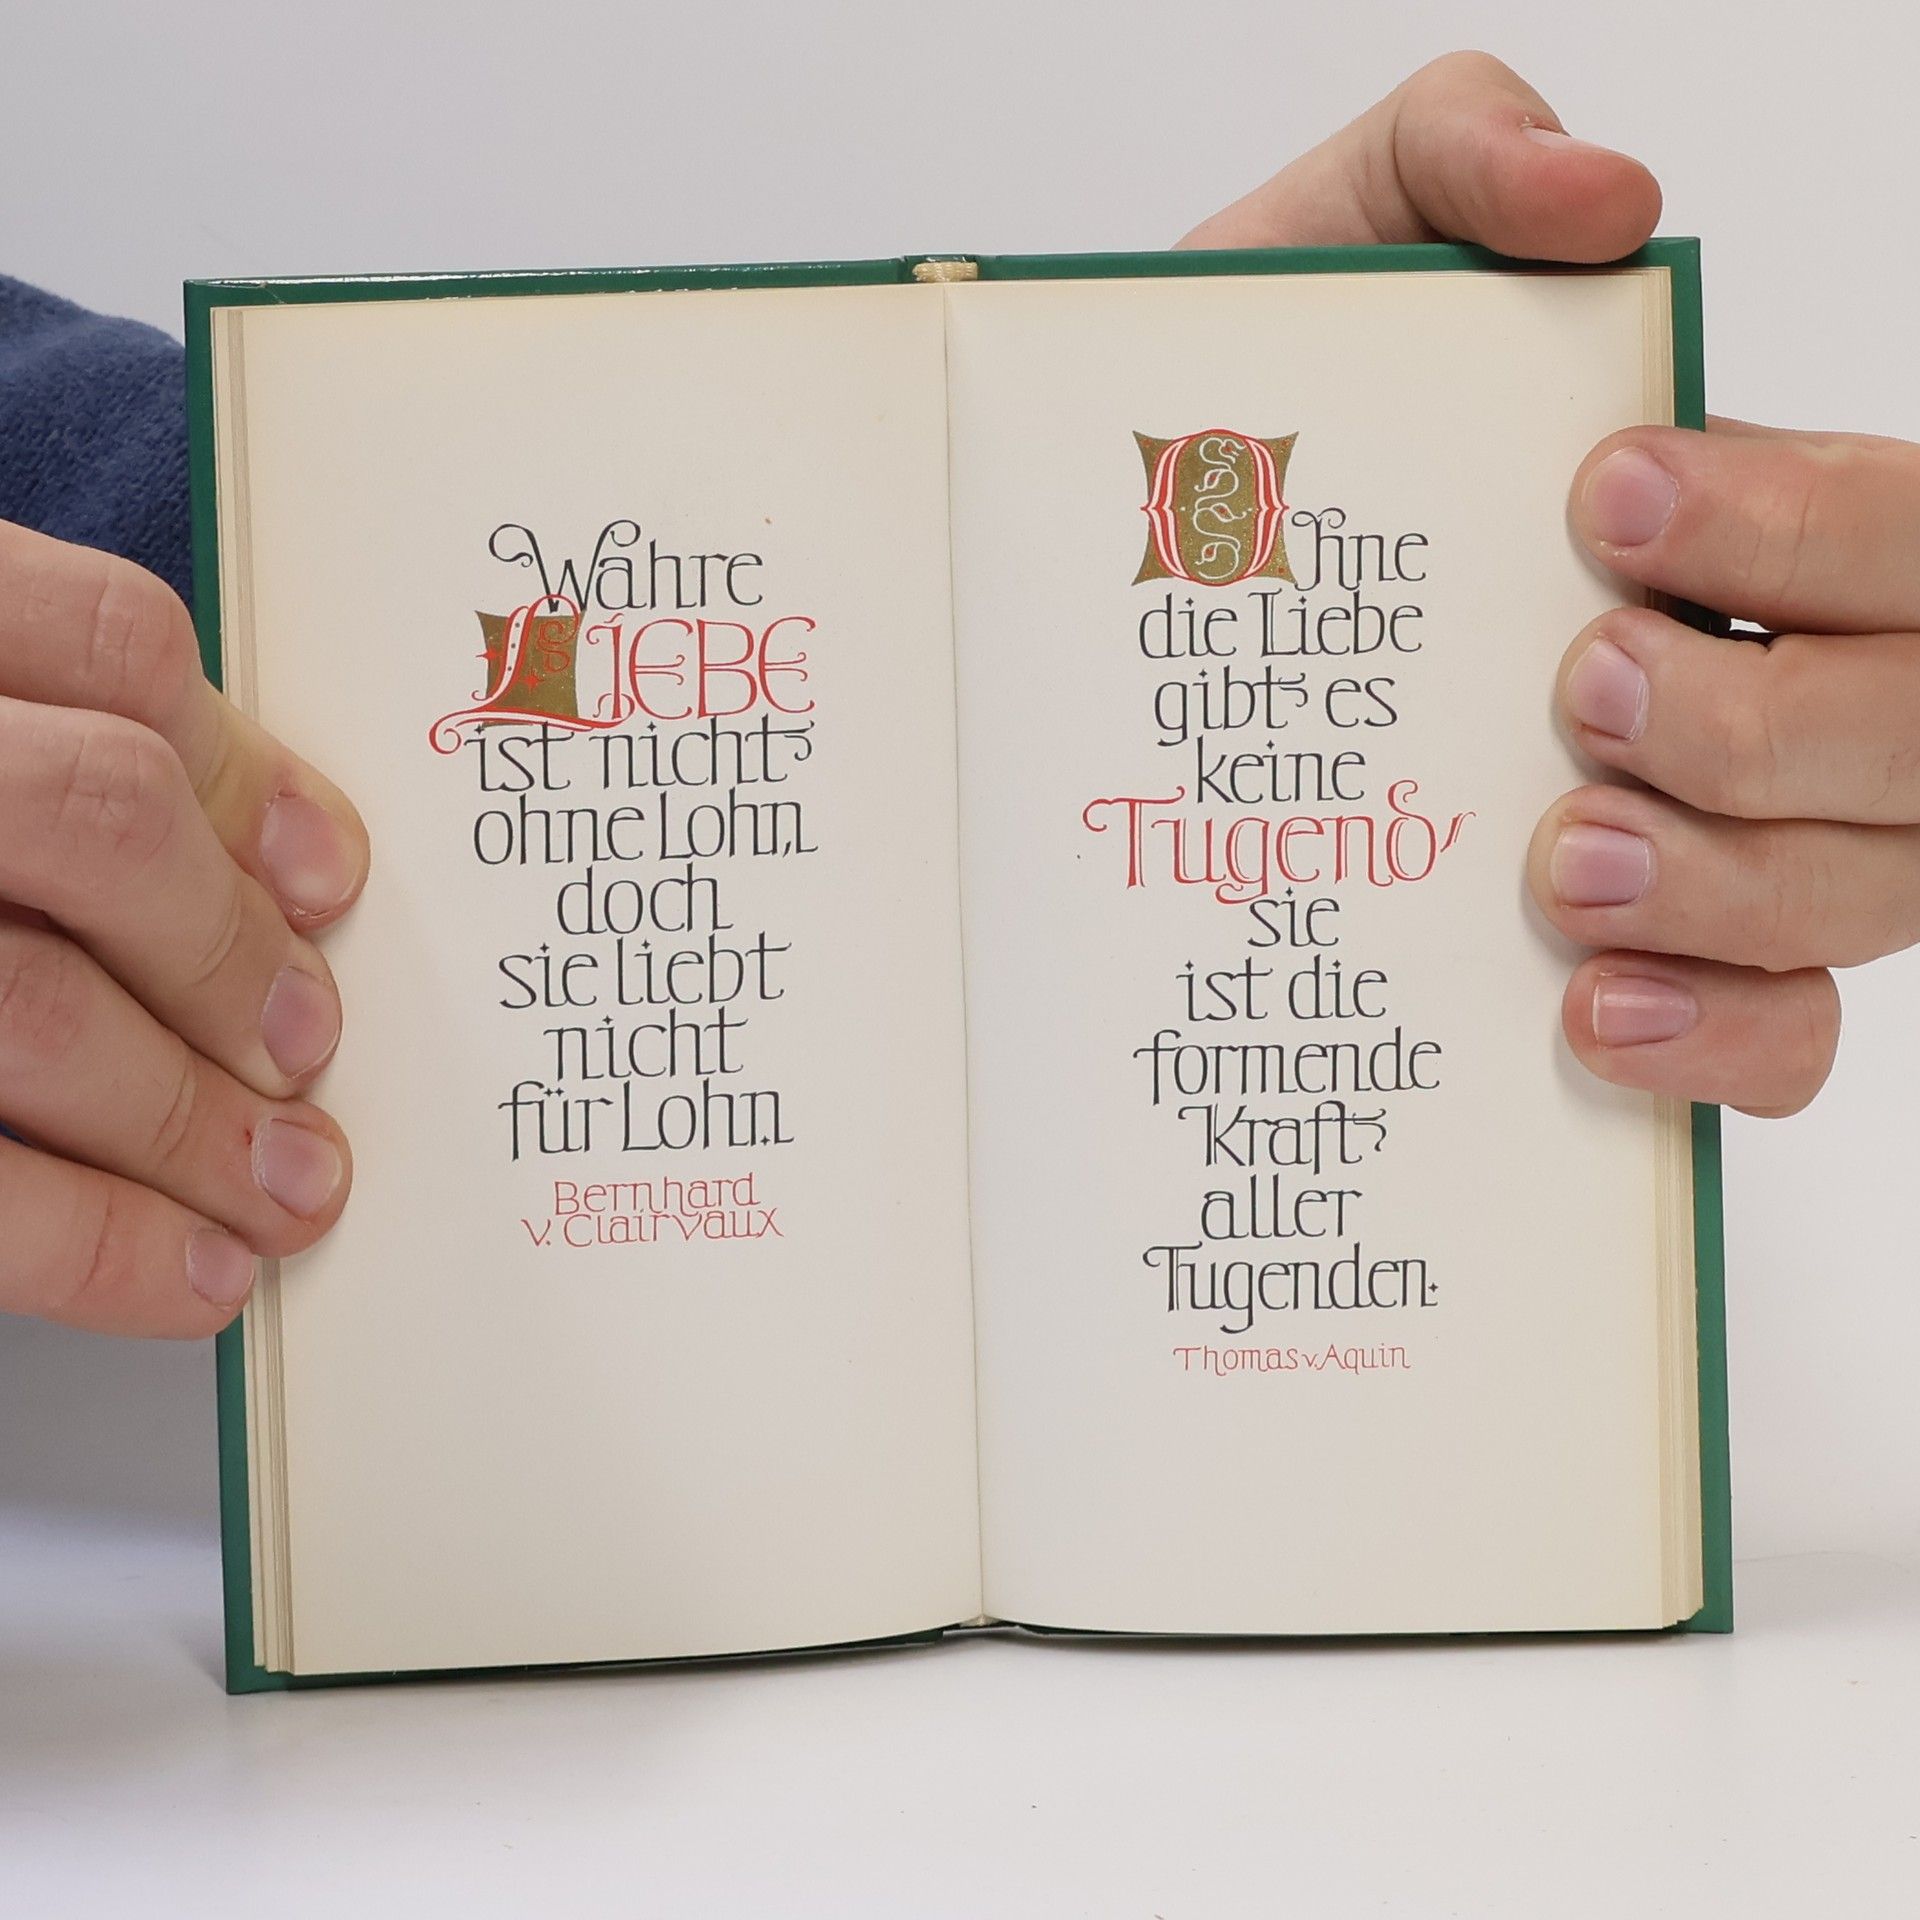 Wahre
LIEBE
ist nicht
ohne Lohn,
doch
sie liebt
nicht
für Lohn.
Bernhard
v. Clairvaux
Ohne
die Liebe
gibt es
keine
Tugend,
sie
ist die
formende
Kraft
aller
Tugenden.
Thomas v. Aquin